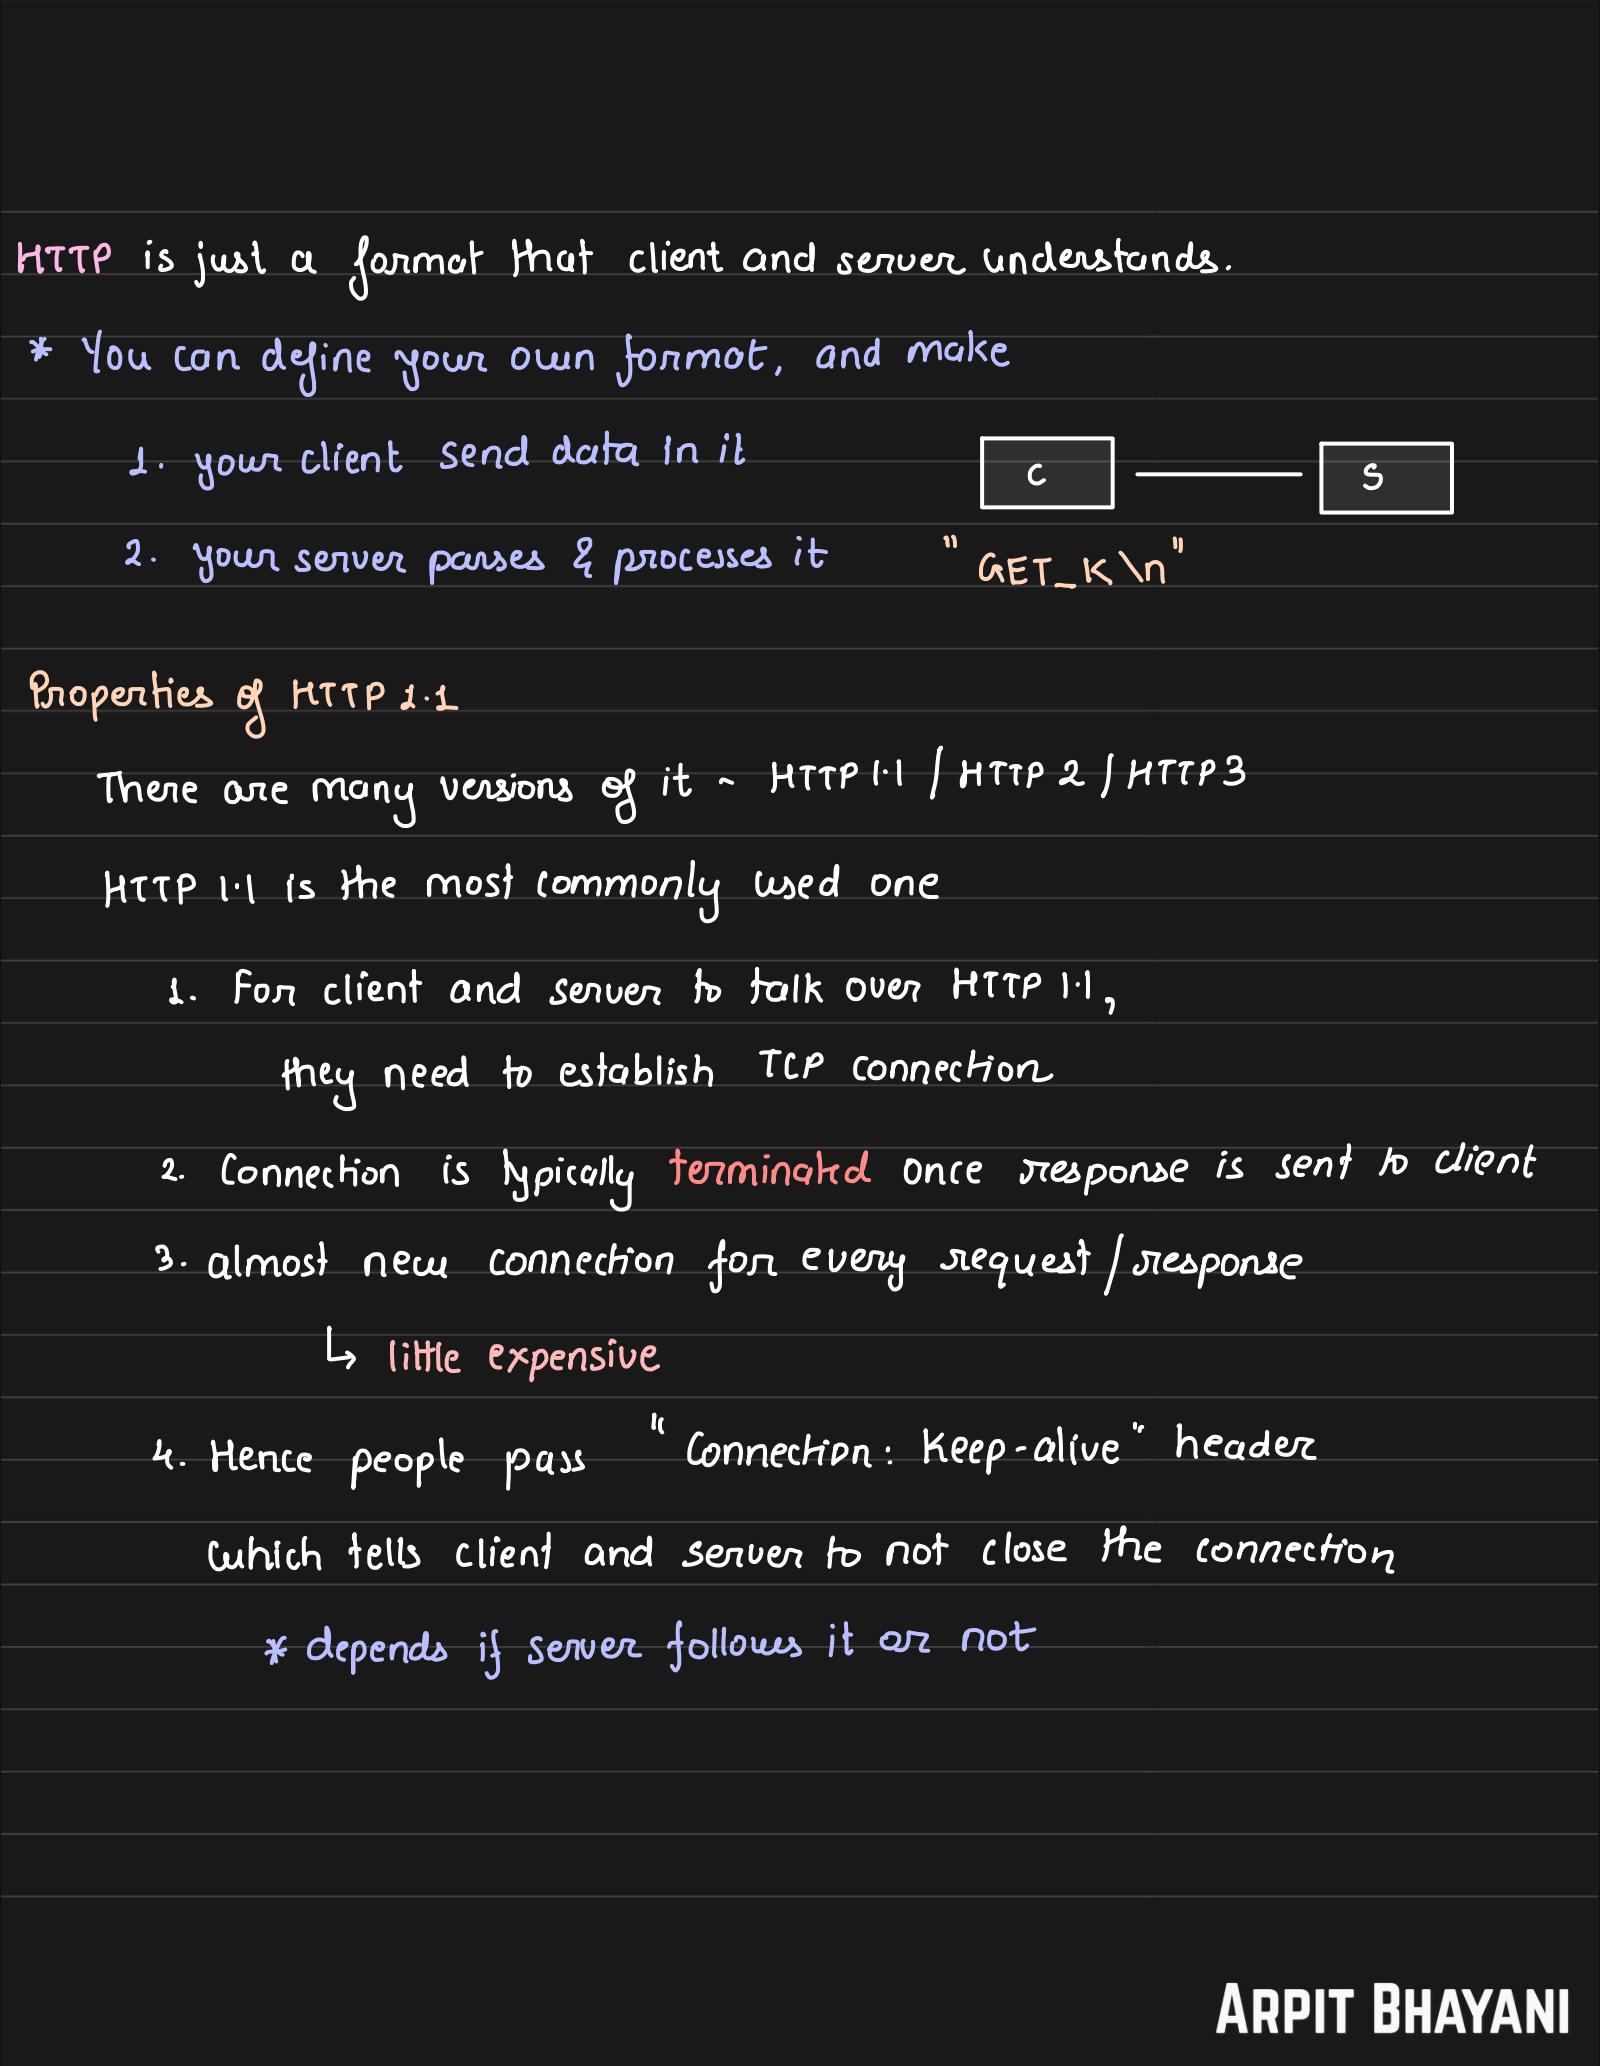 HTTP is just a format that client and server understands.
* You can define your own format, and make
1. your client send data in it
C S
2. your server parses & processes it
"GET_K\n"
Properties of HTTP 1.1
There are many versions of it ~ HTTP 1.1 / HTTP 2 / HTTP 3
HTTP 1.1 is the most commonly used one
1. For client and server to talk over HTTP 1.1,
they need to establish TCP connection
2. Connection is typically terminated once response is sent to client
3. almost new connection for every request/response
↳ little expensive
4. Hence people pass "Connection: Keep-alive" header
which tells client and server to not close the connection
* depends if server follows it or not
ARPIT BHAYANI